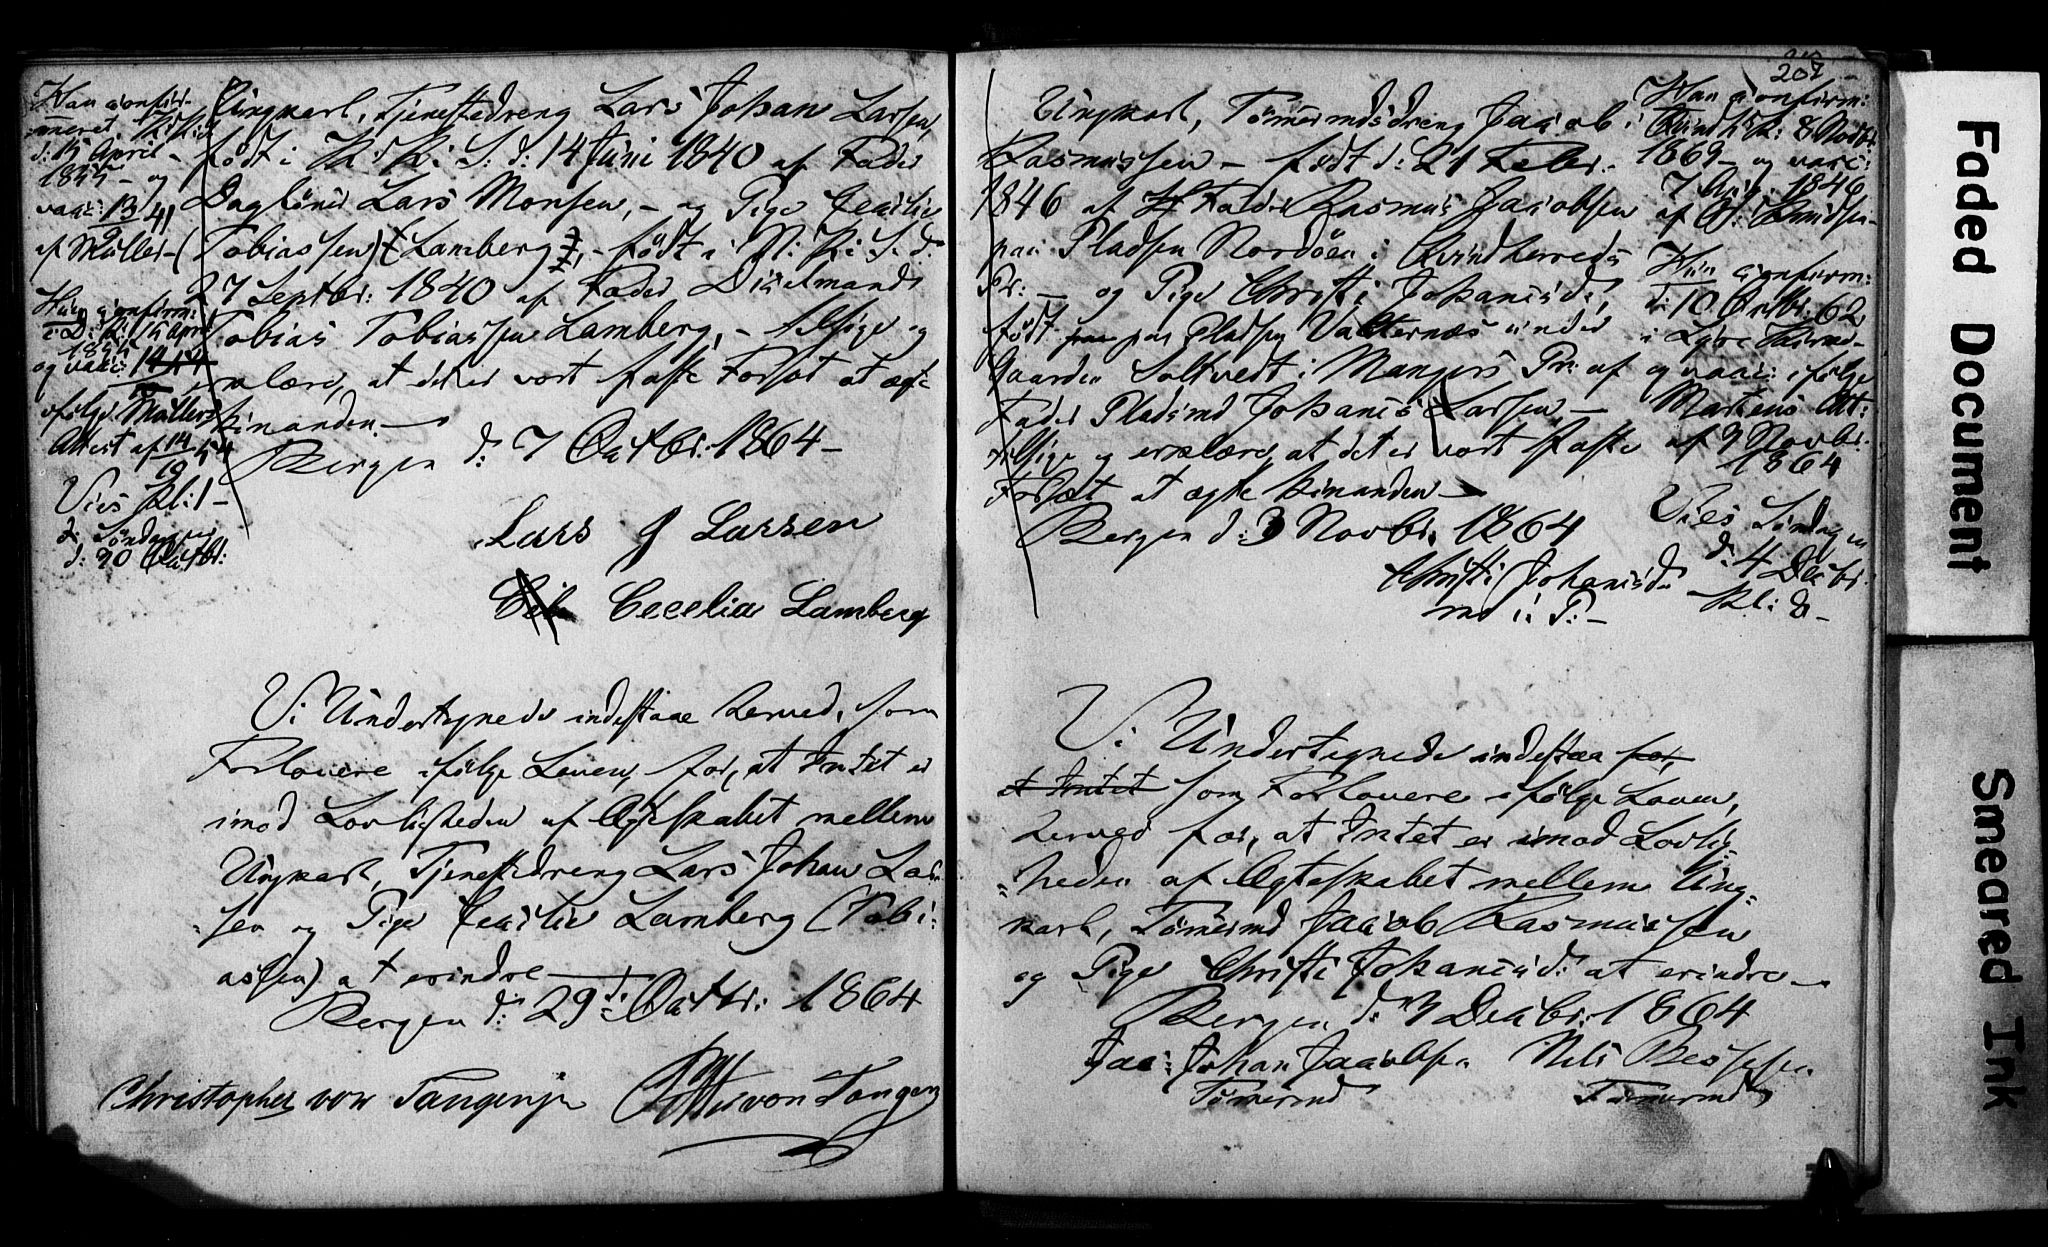 Han confir-
meret i K: K:
d: 15 April
1855 – og
vacc: 13/9 41
af Müller –
Hun confirm:
i D: K: 15 April
1855
og vacc: 14/10 41
ifølge Müllers
Attest af 14/10 54
Vies Kl: 1 –
Søndag
d: 30 Octbr:
Ungkarl, Tjenestedreng Lars Johan Larsen,
født i K: K: S: d: 14 Juni 1840 af Fader
Daglönr Lars Monsen, – og Pige Cecilie
(Tobiassen) Lamberg, – født i N: K: S: d:
27 Septbr: 1840 af Fader
Tobias Tobiassen Lamberg, – tilsige og
erklære, at det er vort faste Forsæt at ægte
hinanden. –
Bergen d: 7 Octbr: 1864 –
Lars J Larsen
Cecelia Lamberg
Vi Undertegnede indestaae herved, som
Forlovere ifølge Loven, for, at Intet er
imod Lovligheden af Ægteskabet mellem
Ungkarl, Tjenestedreng Lars Johan Lar-
sen og Pige Cecilie Lamberg (Tobi-
assen) at erindre
Bergen d: 29 Octbr: 1864
Christopher von Tangen
von Tangen
207
Ungkarl, Tömermdsdreng Jacob
Rasmussen – født d: 21 Febr. –
1846 af Fader Rasmus Jacobsen
paa Pladsen Nordöen i Qvindherreds
Pr: – og Pige Christi Johanisd:,
født paa Pladsen Valternæs under
Gaarden Soltvedt i Mangers Pr: af
Fader Pladsmd Johanis Larsen –
tillige og erklære, at det er vort faste
Forsæt at ægte hinanden –
Bergen d: 3 Novbr. 1864
Christi Johanisd:
md i: P: –
Han confirm:
i Qvindh: K: 8 Novbr:
1863 – og vacc:
7 1846
af Knudsen –
Hun confirm:
d: 10 62
i
og vacc: ifølge
Martens Att:
af 9 Novbr.
1864
Vies Søndagen
d: 4 Decbr:
Kl: 8 –
Vi Undertegnede indestaa for,
at Intet som Forlovere ifølge Loven,
herved for, at Intet er imod Lovlig-
heden af Ægteskabet mellem Ung-
karl, Tömermd Jacob Rasmussen
og Pige Christi Johanisd: at erindre –
Bergen d: 3 Decbr: 1864
Jac: Johan Jacobsen Nils
Tömermd Tömermd
Faded Document
Smeared Ink